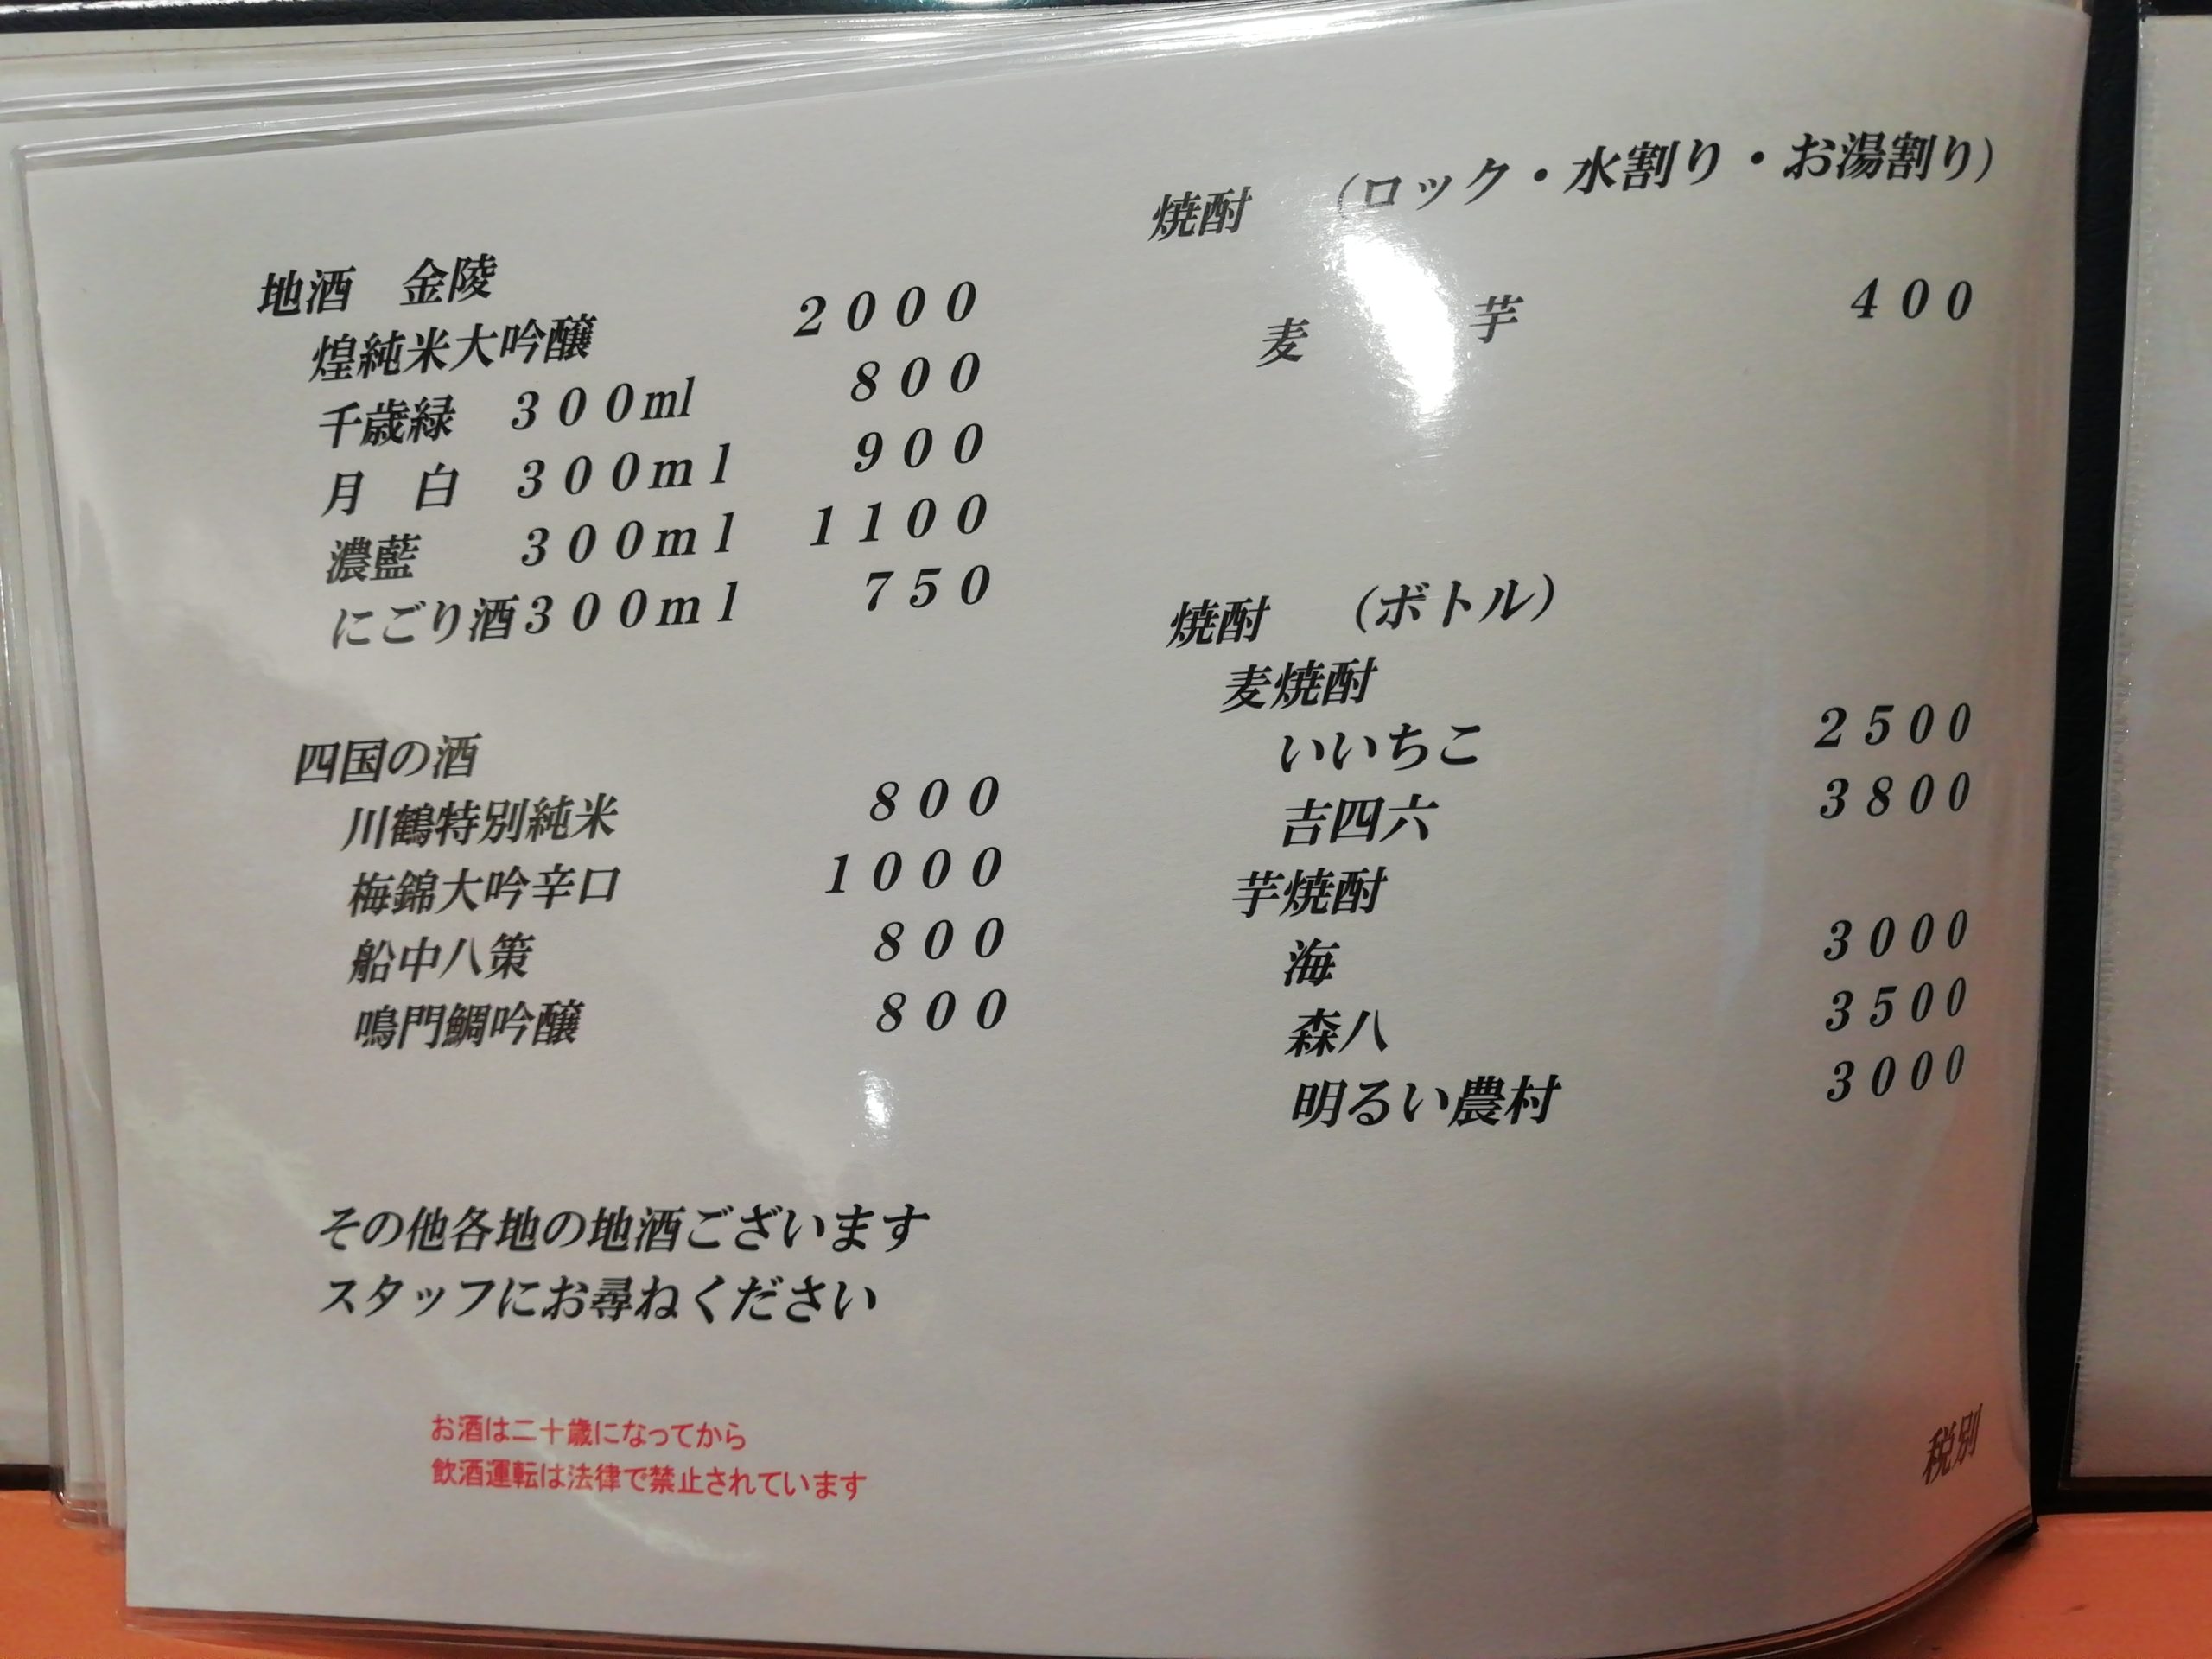 地酒　金陵
煌純米大吟醸　2000
千歳緑　300ml　800
月　白　300ml　900
濃藍　300ml　1100
にごり酒300ml　750
四国の酒
川鶴特別純米　800
梅錦大吟辛口　1000
船中八策　800
鳴門鯛吟醸　800
その他各地の地酒ございます
スタッフにお尋ねください
お酒は二十歳になってから
飲酒運転は法律で禁止されています
焼酎　（ロック・水割り・お湯割り）
麦　芋　400
焼酎　（ボトル）
麦焼酎
いいちこ　2500
吉四六　3800
芋焼酎
海　3000
森八　3500
明るい農村　3000
税別